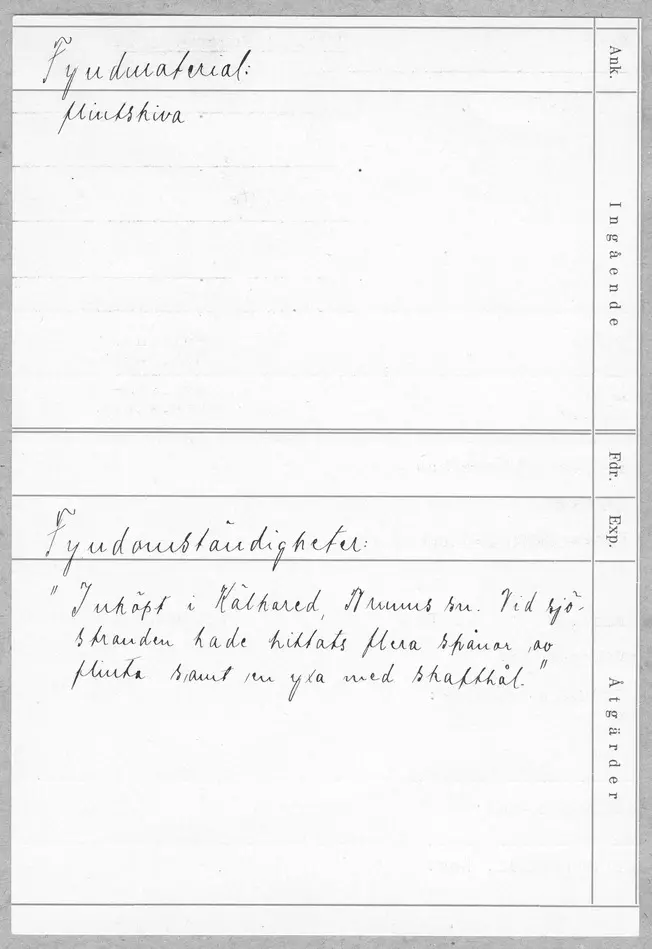 Fyndmaterial:
flintskiva
Fyndomständigheter:
"Inköpt i Kälkared, Numms sn. Vid sjö-
stranden hade hittats flera spånor av
flinta samt en yxa med skafthål."
Ank.
Ingående
Fdr.
Exp.
Åtgärder